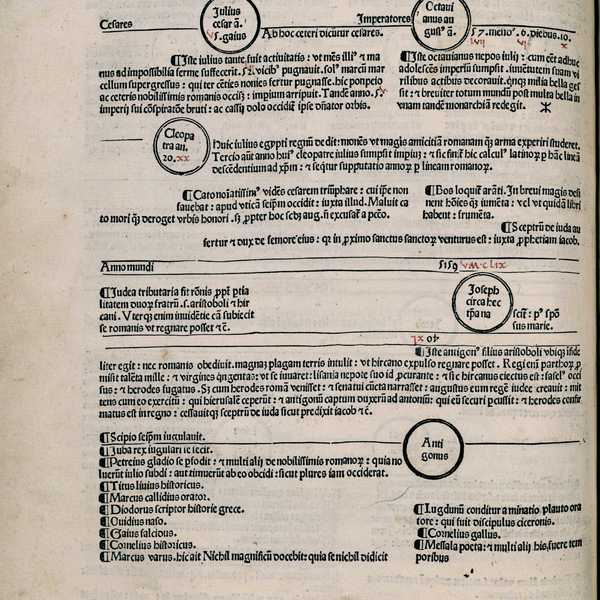 Cesares
Julius
cesar ā.
5. gaius
Imperatores
Octavi
anus au
gustꝰ ā.
57. mensꝰ. 6. diebus. 10.
VII VI X
Ab hoc ceteri dicūtur cesares.
¶Iste iulius tante fuit actiuitatis: ut mēs illiꝰ et ma
nus ad impossibilia ferme suffecerit. 52. vicibꝰ pugnauit. solꝰ marcū mar
cellum supergressus: qui ter cēties nonies fertur pugnasse. hic pompeio
ac ceteris nobilissimis romanis occisꝭ: impium arripuit. Tandē anno. 5
imperii sui cōspiratōe bruti: ac cassij dolo occidit̄ ipse dn̄ator orbis.
¶Iste octauianus nepos iulij: cum eēt adhuc
adolescēs imperiū sumpsit. iuuentutem suam vi
rilibus actibus decorauit. qnqꝫ milia bella ges
sit: et breuiter totum mūdum post multa bella in
vnam tandē monarchiam redegit.
Cleopa
tra an.
20. XX
Huic iulius egypti regnū dedit: monēs vt magis amicitiā romanam qꝫ arma experiri studeret.
Tercio aūt anno huiꝰ cleopatre iulius sumpsit impiū: et sic finit̄ hic calculꝰ latinoꝝ ꝑ hāc lineā
descēdentium ad xp̄m: et seqr̄ supputatio annoꝝ ꝑ lineam romanoꝝ.
¶Cato nō atissimꝰ vidēs cesarem triūphare: cui ipse non
fauebat: apud vticā seipm̄ occidit: iuxta illud. Maluit ca
to mori qꝫ deroget vrbis honori. sꝫ ꝓpter hoc scd̄m aug. nō excusat̄ a pctō.
¶Bos loquit̄ arāti. In breui magis desi
nent hoīes qꝫ iumēta: vel vt quidā libri
habent: frumēta.
¶Sceptrū de iuda au
fertur et dux de femore eius: qꝛ in ꝓximo sanctus sanctoꝝ venturus est: iuxta ꝓphetiam iacob.
Anno mundi
5159 VM·CLIX
¶Judea tributaria fit rōnis ꝓpt̄ ptīa
litatem duoꝝ fratrū. s. aristoboli et hir
cani. Vterqꝫ enim inuidētie cā subiecit
se romanis vt regnare posset et c̄.
Joseph
circa hec
tpa na
scit̄: pꝰ spō
sus marie.
40 XL
¶Iste antigonꝰ filius aristoboli vbiqꝫ iīside
liter egit: nec romanis obediuit. magnaꝫ plagam terris intulit: vt hircano expulso regnare posset. Regiem parthoꝝ ꝓ
misit talēta mille: et virgines qn̄gentas: vt se iuuaret: lisania nepote suo id ꝓcurante: et sic hircanus eiectus est: faselꝰ occi
sus: et herodes fugatus. Sꝫ cum herodes romā venisset: et senatui cūcta narrasset: augustus eum regē iudee creauit: mit
tens cum eo exercitū: qui hierusalē ceperūt: et antigonū captum duxerūt ad antoniū: qui eū securi ꝑcussit: et herodes confir
matus est in regno: cessauitqꝫ sceptrū de iuda sicut predixit iacob et c̄.
Anti
gonus
¶Scipio seipm̄ iugulauit.
¶Juba rex iugulari se iecit.
¶Petreius gladio se ꝑfodit: et multi alij de nobilissimis romanoꝝ: quia no
luerūt iulio subdi: aut timuerūt ab eo occidi: sicut plures iam occiderat.
¶Titus liuius historicus.
¶Marcus callidius orator.
¶Diodorus scriptor historie grece.
¶Ouidius naso.
¶Gaius salcious.
¶Cornelius historicus.
¶Marcus varus. hic ait Nichil magnificū docebit: quia se nichil didicit
¶Lugdunū conditur a minatio. plauto ora
tore: qui fuit discipulus ciceronis.
¶Cornelius gallus.
¶Messala poeta: et multi alij his fuere tem
poribus